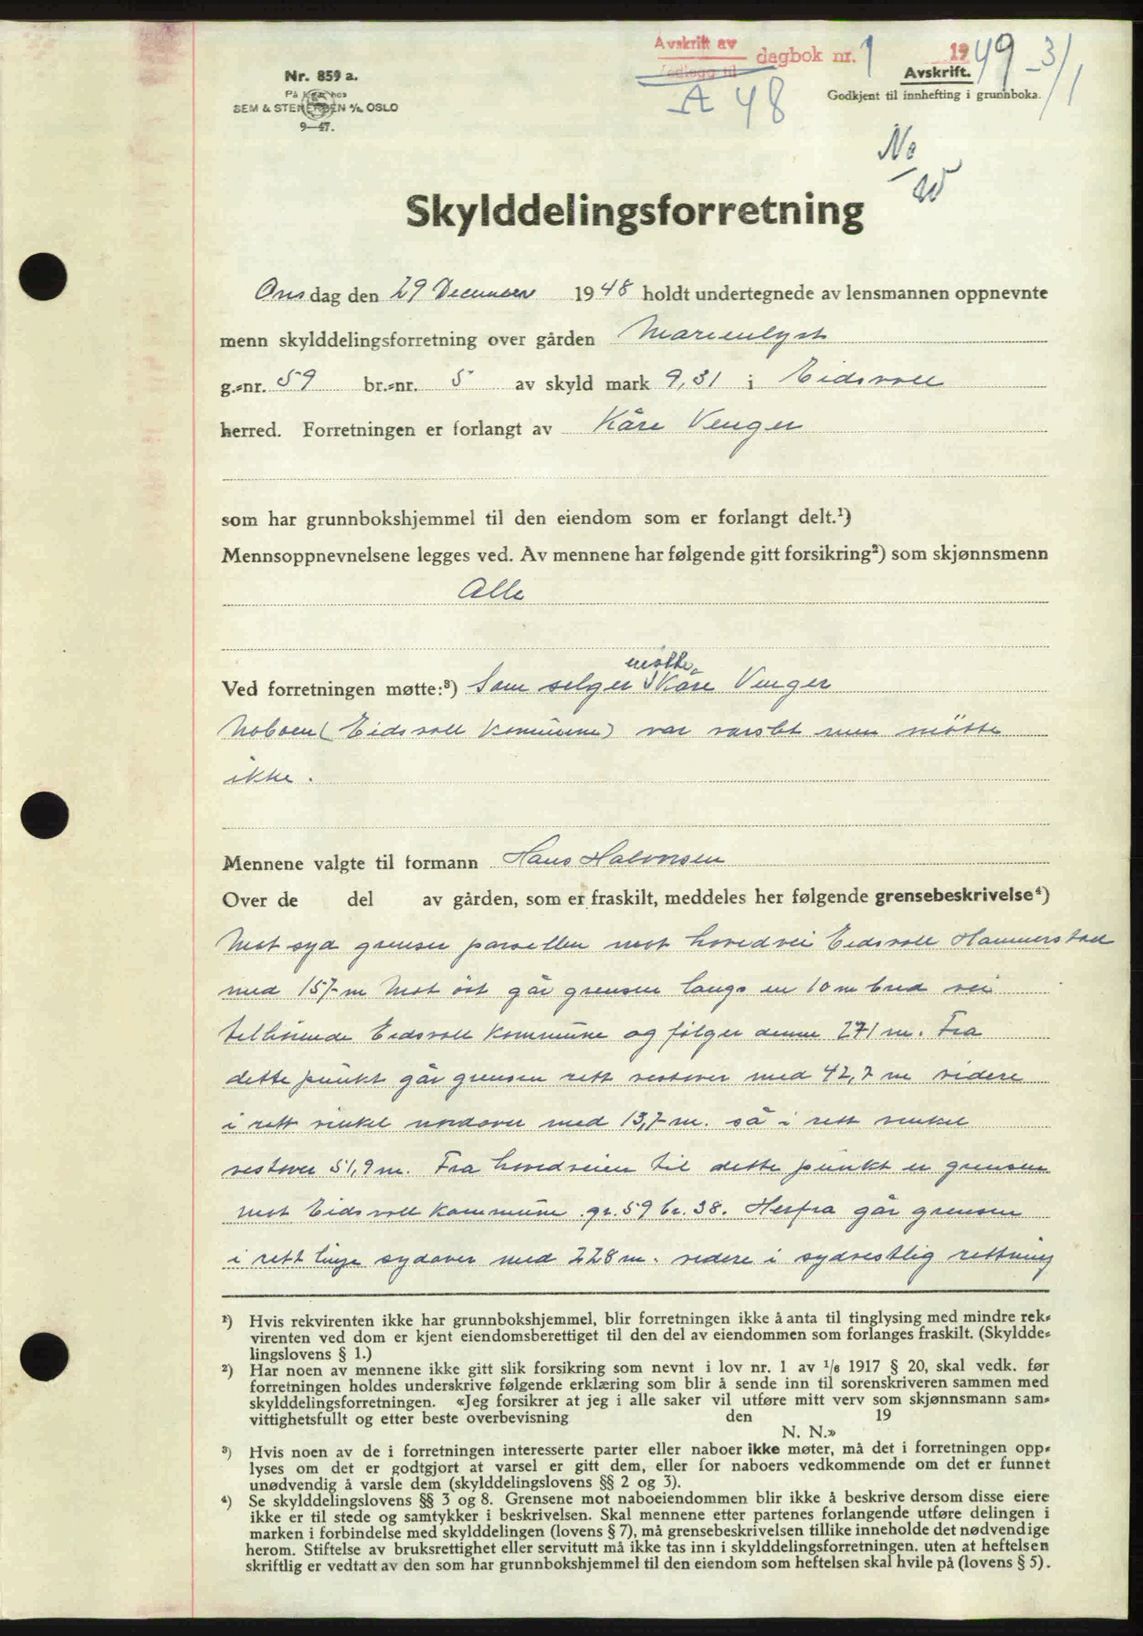 Avskrift av
dagbok nr. 1 1949 - 3/1
Avskrift.
Godkjent til innhefting i grunnboka.
A 48
Nr. 859 a.
SEM & STENERSEN A/S, OSLO
9—47.
No
Skylddelingsforretning
Onsdag den 29 December 1948 holdt undertegnede av lensmannen oppnevnte
menn skylddelingsforretning over gården Marienlyst
g.-nr. 59 br.-nr. 5 av skyld mark 9,31 i Eidsvoll
herred. Forretningen er forlangt av Kåre Venger
som har grunnbokshjemmel til den eiendom som er forlangt delt.¹)
Mennsoppnevnelsene legges ved. Av mennene har følgende gitt forsikring²) som skjønnsmenn
Alle
Ved forretningen møtte:³) Som selger møtte Kåre Venger
Naboen (Eidsvoll Kommune) var varslet men møtte
ikke.
Mennene valgte til formann Hans Halvorsen
Over de del av gården, som er fraskilt, meddeles her følgende grensebeskrivelse⁴)
Mot syd grenser parsellen mot hovedvei Eidsvoll Hammerstad
med 157 m Mot öst går grensen langs en 10 m bred vei
tilhörende Eidsvoll Kommune og fölger denne 271 m. Fra
dette punkt går grensen rett vestover med 42,7 m videre
i rett vinkel nordover med 13,7 m. så i rett vinkel
vestover 51,9 m. Fra hovedveien til dette punkt er grensen
mot Eidsvoll Kommune gr. 59 br. 38. Herfra går grensen
i rett linje sydover med 228 m. videre i sydvestlig rettning
¹) Hvis rekvirenten ikke har grunnbokshjemmel, blir forretningen ikke å anta til tinglysing med mindre rek-
virenten ved dom er kjent eiendomsberettiget til den del av eiendommen som forlanges fraskilt. (Skyldde-
lingslovens § 1.)
²) Har noen av mennene ikke gitt slik forsikring som nevnt i lov nr. 1 av 1/6 1917 § 20, skal vedk. før
forretningen holdes underskrive følgende erklæring som blir å sende inn til sorenskriveren sammen med
skylddelingsforretningen. «Jeg forsikrer at jeg i alle saker vil utføre mitt verv som skjønnsmann sam-
vittighetsfullt og etter beste overbevisning den 19
N. N.»
³) Hvis noen av de i forretningen interesserte parter eller naboer ikke møter, må det i forretningen opp-
lyses om det er godtgjort at varsel er gitt dem, eller for naboers vedkommende om det er funnet
unødvendig å varsle dem (skylddelingslovens §§ 2 og 3).
⁴) Se skylddelingslovens §§ 3 og 8. Grensene mot naboeiendommen blir ikke å beskrive dersom disse eiere
ikke er til stede og samtykker i beskrivelsen. Skal mennene etter partenes forlangende utføre delingen i
marken i forbindelse med skylddelingen (lovens § 7), må grensebeskrivelsen tillike inneholde det nødvendige
herom. Stiftelse av bruksrettighet eller servitutt må ikke tas inn i skylddelingsforretningen, uten at heftelsen
skriftlig er vedtatt av den som har grunnbokshjemmel til den eiendom som heftelsen skal hvile på (lovens § 5).